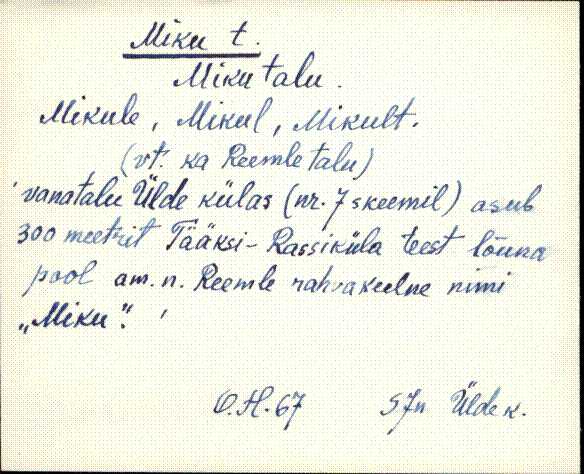 Miku t.
Miku talu.
Mikule, Mikul, Mikult.
(vt. ka Reemle talu)
vanatalu Ülde külas (nr. 7 skeemil) asub
300 meetrit Tääksi-Rassiküla teest lõuna
pool am. n. Reemle rahvakeelne nimi
„Miku".
O.H. 67 SJn Ülde k.